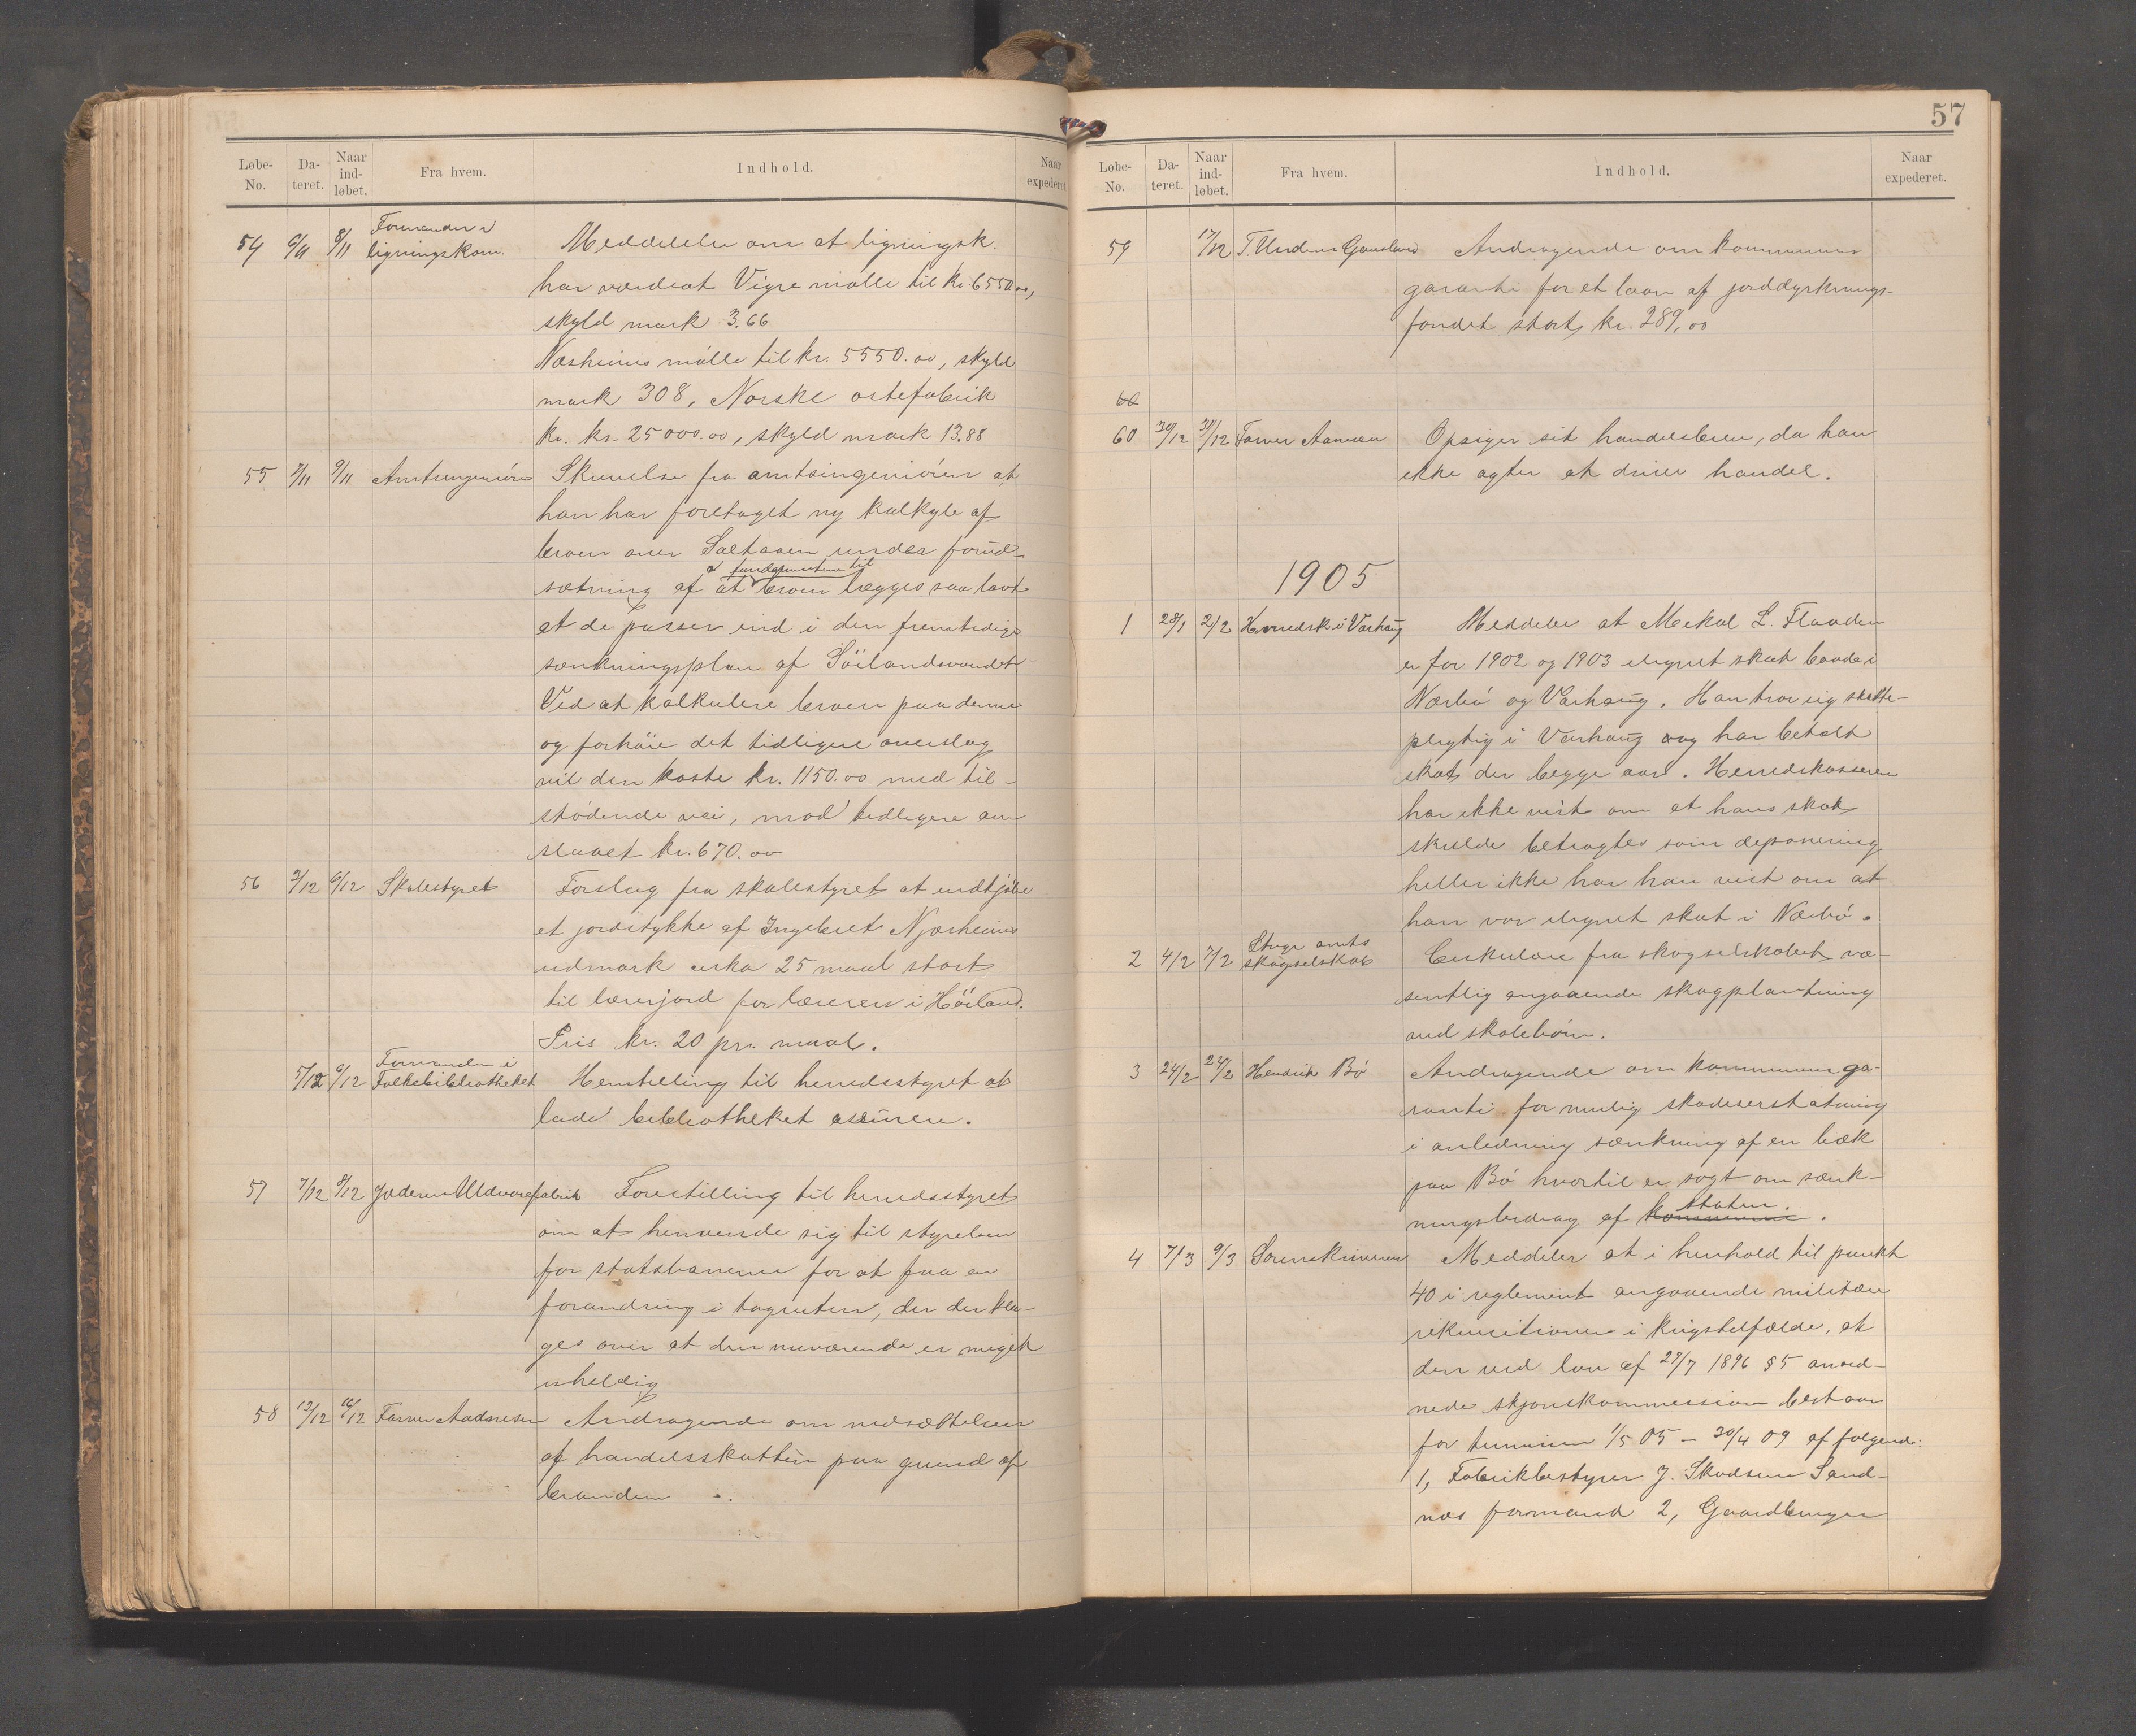 Løbe-No. Da-teret. Naar ind-løbet. Fra hvem. Indhold. Naar expederet.
54 6/11 8/11 Formanden i ligningskom. Meddelelse om at ligningsk.
har værderet Vigre mølle til kr. 6550.00,
skyld mark 3.66
Næsheims mølle til kr. 5550.00, skyld
mark 308, Norske ostefabrik
kr. kr. 25000.00, skyld mark 13.88
55 7/11 9/11 Amtsingeniøren Skrivelse fra amtsingeniøren at
han har foretaget ny kalkyle af
broen over Saltaaen under forud-
sætning af at fundamentene til broen lægges saa lavt
at de passer ind i den fremtidige
sænkningsplan af Söilandsvandet.
Ved at kalkulere broen paa denne
og forhøie det tidligere overslag
vil den koste kr. 1150.00 med til-
stødende vei, mod tidligere an
slaaet kr. 670.00
56 3/12 6/12 Skolestyret Forslag fra skolestyret at indkjøbe
et jordstykke af Ingebret Njærheims
udmark cirka 25 maal stort
til lærerjord for læreren i Höiland.
Pris kr. 20 pr. maal.
5/12 6/12 Formanden i Folkebibliotheket Henstilling til herredsstyret at
lade bibliotheket assurere.
57 7/12 8/12 Jæderens Uldvarefabrik Forestilling til herredsstyret
om at henvende sig til styrelsen
for statsbanerne for at faa en
forandring i togruten, der der kla-
ges over at den nuværende er meget
uheldig
58 12/12 16/12 Farver Aadnesen Andragende om nedsættelsen
af handelsskatten paa grund af
branden
57
Løbe-No. Da-teret. Naar ind-løbet. Fra hvem. Indhold. Naar expederet.
59 17/12 Andragende om kommunens
garanti for et laan af jorddyrknings-
fondet stort kr. 289,00
60
60 30/12 31/12 Farver Opsiger sit handelsbrev, da han
ikke agter at drive handel.
1905
1 28/1 2/2 Herredsk. i Varhaug Meddeler at Mekal L. Flaaden
er for 1902 og 1903 ilignet skat baade i
Nærbø og Varhaug. Han tror sig skatte-
pligtig i Varhaug og har betalt
skat der begge aar. Herredskasseren
har ikke vist om at hans skat
skulde betragtes som deponering
heller ikke har han vist om at
han var ilignet skat i Nærbø.
2 4/2 7/2 Stvgr amts skogselskab Cirkulære fra skogselskabet væ-
sentlig angaaende skogplantning
ved skolebørn.
3 24/2 24/2 Hendrik Bø Andragende om kommunega-
ranti for mulig skadeserstatning
i anledning sænkning af en bæk
paa Bø hvortil er søgt om sænk-
ningsbidrag af kommune staten.
4 7/3 9/3 Sorenskriveren Meddeler at i henhold til punkt
40 i reglement angaaende militære
rekvisitioner i krigstilfælde, at
den ved lov af 27/7 1896 § 5 anord-
nede skjønskommission bestaar
for terminen 1/5 05 - 30/4 09 af følgende:
1, Fabrikbestyrer J. Skadsem Sand-
nes formand 2, Gaardbruger